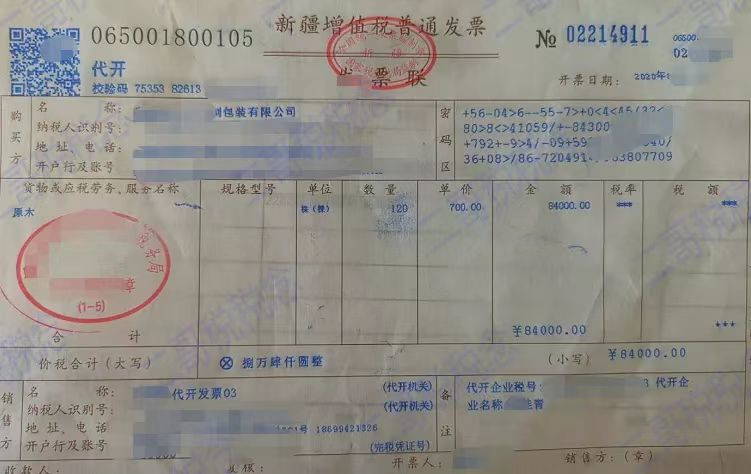 065001800105
新疆增值税普通发票
№ 02214911
0650
02
代开
校验码 75353 82613
发票联
开票日期: 2020年
购买方
名 称: 刷包装有限公司
纳税人识别号:
地 址、电 话:
开户行及账号
密码区
+56-04>6--55-7>+0<4<45/32<
80>8<>41059/+-84300
+792+-9>4/-09+59 40/
36+08>/86-7204914 63807709
货物或应税劳务、服务名称 规格型号 单位 数 量 单 价 金 额 税率 税 额
原木 株(棵) 120 700.00 84000.00 *** ***
税务局
章
(1-5)
合 计 ¥84000.00 ***
价税合计(大写) ⊗ 捌万肆仟圆整 (小写) ¥84000.00
销售方
名 称: 代开发票03 (代开机关)
纳税人识别号: (代开机关)
地址、电话: 号 18699421326
开户行及账号 (完税凭证号)
备注
代开企业税号: 3 代开企
业名称
收款人: 复核: 开票人: 销售方:(章)
二哥税税念